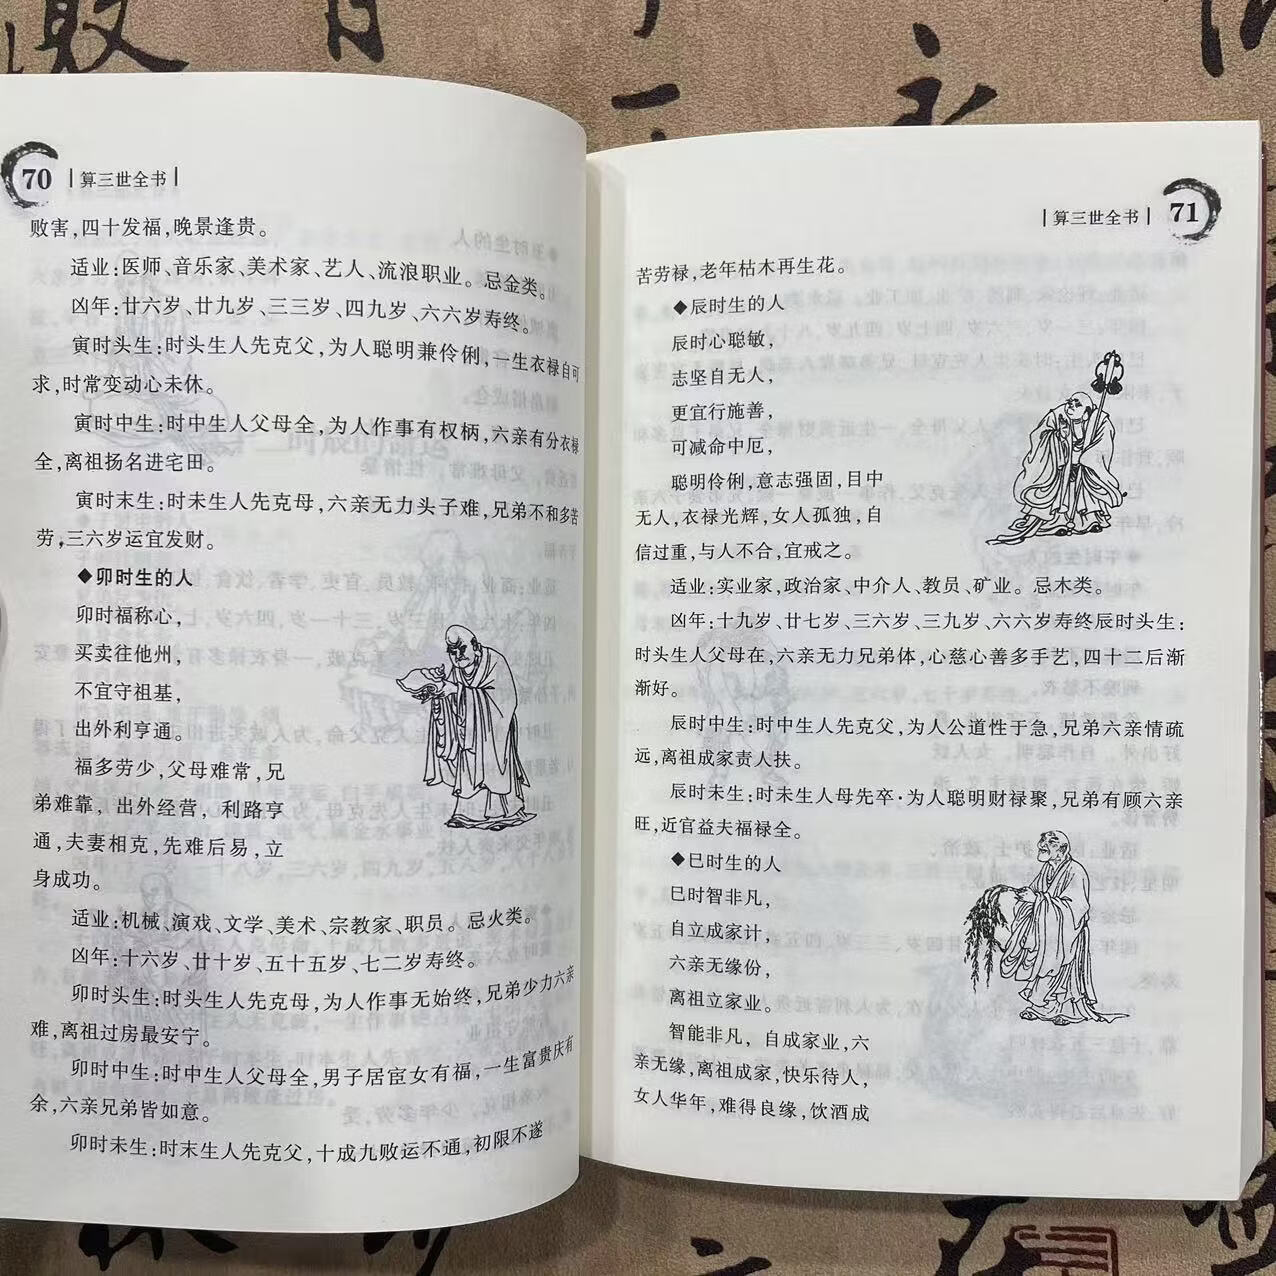 70 算三世全书
败害,四十发福,晚景逢贵。
适业:医师、音乐家、美术家、艺人、流浪职业。忌金类。
凶年:廿六岁、廿九岁、三三岁、四九岁、六六岁寿终。
寅时头生:时头生人先克父,为人聪明兼伶俐,一生衣禄自可
求,时常变动心未休。
寅时中生:时中生人父母全,为人作事有权柄,六亲有分衣禄
全,离祖扬名进宅田。
寅时末生:时未生人先克母,六亲无力头子难,兄弟不和多苦
劳,三六岁运宜发财。
◆卯时生的人
卯时福称心,
买卖往他州,
不宜守祖基,
出外利亨通。
福多劳少,父母难常,兄
弟难靠,出外经营,利路亨
通,夫妻相克,先难后易,立
身成功。
适业:机械、演戏、文学、美术、宗教家、职员。忌火类。
凶年:十六岁、廿十岁、五十五岁、七二岁寿终。
卯时头生:时头生人先克母,为人作事无始终,兄弟少力六亲
难,离祖过房最安宁。
卯时中生:时中生人父母全,男子居宦女有福,一生富贵庆有
余,六亲兄弟皆如意。
卯时未生:时末生人先克父,十成九败运不通,初限不遂
算三世全书 71
苦劳禄,老年枯木再生花。
◆辰时生的人
辰时心聪敏,
志坚自无人,
更宜行施善,
可减命中厄,
聪明伶俐,意志强固,目中
无人,衣禄光辉,女人孤独,自
信过重,与人不合,宜戒之。
适业:实业家,政治家、中介人、教员、矿业。忌木类。
凶年:十九岁、廿七岁、三六岁、三九岁、六六岁寿终辰时头生:
时头生人父母在,六亲无力兄弟体,心慈心善多手艺,四十二后渐
渐好。
辰时中生:时中生人先克父,为人公道性于急,兄弟六亲情疏
远,离祖成家责人扶。
辰时未生:时未生人母先卒·为人聪明财禄聚,兄弟有顾六亲
旺,近官益夫福禄全。
◆巳时生的人
巳时智非凡,
自立成家计,
六亲无缘份,
离祖立家业。
智能非凡,自成家业,六
亲无缘,离祖成家,快乐待人,
女人华年,难得良缘,饮酒成